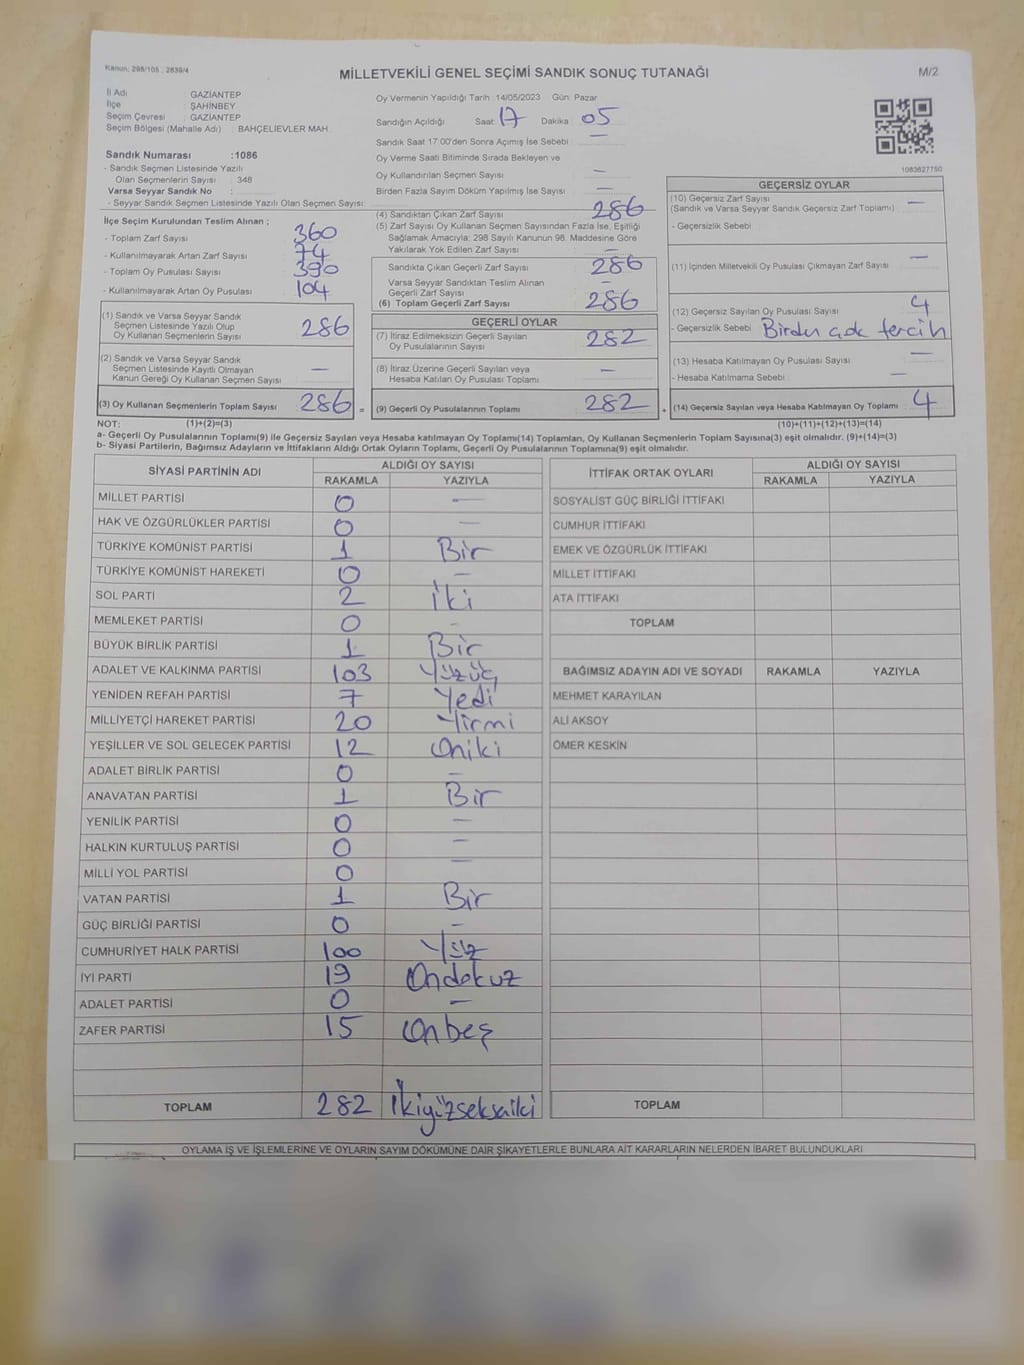 Kanun: 298/105 ; 2839/4
MİLLETVEKİLİ GENEL SEÇİMİ SANDIK SONUÇ TUTANAĞI
M/2
İl Adı : GAZİANTEP
İlçe : ŞAHİNBEY
Seçim Çevresi : GAZİANTEP
Seçim Bölgesi (Mahalle Adı) : BAHÇELİEVLER MAH.
Sandık Numarası :1086
- Sandık Seçmen Listesinde Yazılı
Olan Seçmenlerin Sayısı : 348
Varsa Seyyar Sandık No :
- Seyyar Sandık Seçmen Listesinde Yazılı Olan Seçmen Sayısı:
Oy Vermenin Yapıldığı Tarih :14/05/2023 Gün: Pazar
Sandığın Açıldığı Saat: 17 Dakika : 05
Sandık Saat 17:00'den Sonra Açımış İse Sebebi : —
Oy Verme Saati Bitiminde Sırada Bekleyen ve
Oy Kullandırılan Seçmen Sayısı : —
Birden Fazla Sayım Döküm Yapılmış İse Sayısı : —
1083627750
İlçe Seçim Kurulundan Teslim Alınan ;
- Toplam Zarf Sayısı : 360
- Kullanılmayarak Artan Zarf Sayısı : 74
- Toplam Oy Pusulası Sayısı : 390
- Kullanılmayarak Artan Oy Pusulası : 104
(1) Sandık ve Varsa Seyyar Sandık
Seçmen Listesinde Yazılı Olup
Oy Kullanan Seçmenlerin Sayısı : 286
(2) Sandık ve Varsa Seyyar Sandık
Seçmen Listesinde Kayıtlı Olmayan
Kanun Gereği Oy Kullanan Seçmen Sayısı : —
(3) Oy Kullanan Seçmenlerin Toplam Sayısı : 286 =
(4) Sandıktan Çıkan Zarf Sayısı : 286
(5) Zarf Sayısı Oy Kullanan Seçmen Sayısından Fazla İse, Eşitliği
Sağlamak Amacıyla; 298 Sayılı Kanunun 98. Maddesine Göre
Yakılarak Yok Edilen Zarf Sayısı : —
Sandıkta Çıkan Geçerli Zarf Sayısı : 286
Varsa Seyyar Sandıktan Teslim Alınan
Geçerli Zarf Sayısı : —
(6) Toplam Geçerli Zarf Sayısı : 286
GEÇERLİ OYLAR
(7) İtiraz Edilmeksizin Geçerli Sayılan
Oy Pusulalarının Sayısı : 282
(8) İtiraz Üzerine Geçerli Sayılan veya
Hesaba Katılan Oy Pusulası Toplamı : —
(9) Geçerli Oy Pusulalarının Toplamı : 282 +
GEÇERSİZ OYLAR
(10) Geçersiz Zarf Sayısı : —
(Sandık ve Varsa Seyyar Sandık Geçersiz Zarf Toplamı)
- Geçersizlik Sebebi :
(11) İçinden Milletvekili Oy Pusulası Çıkmayan Zarf Sayısı : —
(12) Geçersiz Sayılan Oy Pusulası Sayısı : 4
- Geçersizlik Sebebi : Birden çok tercih
(13) Hesaba Katılmayan Oy Pusulası Sayısı : —
- Hesaba Katılmama Sebebi : —
(14) Geçersiz Sayılan veya Hesaba Katılmayan Oy Toplamı : 4
NOT: (1)+(2)=(3) (10)+(11)+(12)+(13)=(14)
a- Geçerli Oy Pusulalarının Toplamı(9) ile Geçersiz Sayılan veya Hesaba katılmayan Oy Toplamı(14) Toplamları, Oy Kullanan Seçmenlerin Toplam Sayısına(3) eşit olmalıdır. (9)+(14)=(3)
b- Siyasi Partilerin, Bağımsız Adayların ve İttifakların Aldığı Ortak Oyların Toplamı, Geçerli Oy Pusulalarının Toplamına(9) eşit olmalıdır.
SİYASİ PARTİNİN ADI ALDIĞI OY SAYISI
RAKAMLA YAZIYLA
MİLLET PARTİSİ 0 —
HAK VE ÖZGÜRLÜKLER PARTİSİ 0 —
TÜRKİYE KOMÜNİST PARTİSİ 1 Bir
TÜRKİYE KOMÜNİST HAREKETİ 0 —
SOL PARTİ 2 İki
MEMLEKET PARTİSİ 0 —
BÜYÜK BİRLİK PARTİSİ 1 Bir
ADALET VE KALKINMA PARTİSİ 103 Yüzüç
YENİDEN REFAH PARTİSİ 7 Yedi
MİLLİYETÇİ HAREKET PARTİSİ 20 Yirmi
YEŞİLLER VE SOL GELECEK PARTİSİ 12 Oniki
ADALET BİRLİK PARTİSİ 0 —
ANAVATAN PARTİSİ 1 Bir
YENİLİK PARTİSİ 0 —
HALKIN KURTULUŞ PARTİSİ 0 —
MİLLİ YOL PARTİSİ 0 —
VATAN PARTİSİ 1 Bir
GÜÇ BİRLİĞİ PARTİSİ 0 —
CUMHURİYET HALK PARTİSİ 100 Yüz
İYİ PARTİ 19 Ondokuz
ADALET PARTİSİ 0 —
ZAFER PARTİSİ 15 Onbeş
TOPLAM 282 İkiyüzseksaiki
İTTİFAK ORTAK OYLARI ALDIĞI OY SAYISI
RAKAMLA YAZIYLA
SOSYALİST GÜÇ BİRLİĞİ İTTİFAKI
CUMHUR İTTİFAKI
EMEK VE ÖZGÜRLÜK İTTİFAKI
MİLLET İTTİFAKI
ATA İTTİFAKI
TOPLAM
BAĞIMSIZ ADAYIN ADI VE SOYADI RAKAMLA YAZIYLA
MEHMET KARAYILAN
ALİ AKSOY
ÖMER KESKİN
TOPLAM
OYLAMA İŞ VE İŞLEMLERİNE VE OYLARIN SAYIM DÖKÜMÜNE DAİR ŞİKAYETLERLE BUNLARA AİT KARARLARIN NELERDEN İBARET BULUNDUKLARI